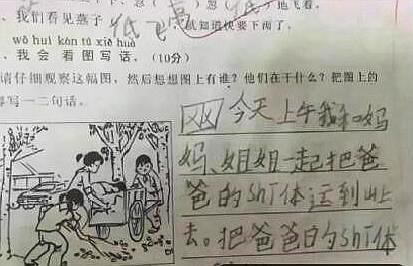 我们看见燕子 低飞 就知道快要下雨了。
wǒ huì kàn tú xiě huà
我会看图写话。(10分)
请仔细观察这幅图,然后想想图上有谁?他们在干什么?把图上的
写一二句话。
今天上午我和妈
妈、姐姐一起把爸
爸的shT体运到山上
去。把爸爸的shT体